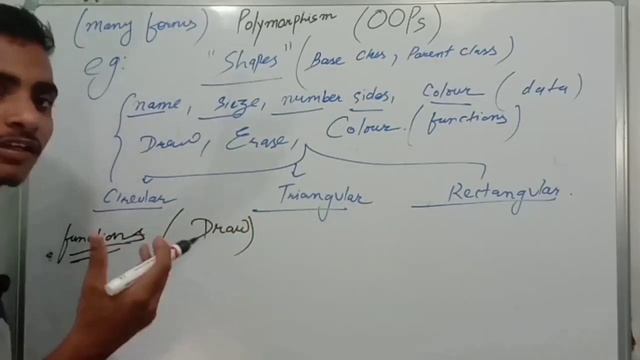 (many forms) Polymorphism (OOPs)
eg: "Shapes" (Base Class, Parent Class)
name, sieze, number sides, Colour (data)
Draw, Erase, Colour. (functions)
Circular Triangular Rectangular.
functions (Draw)